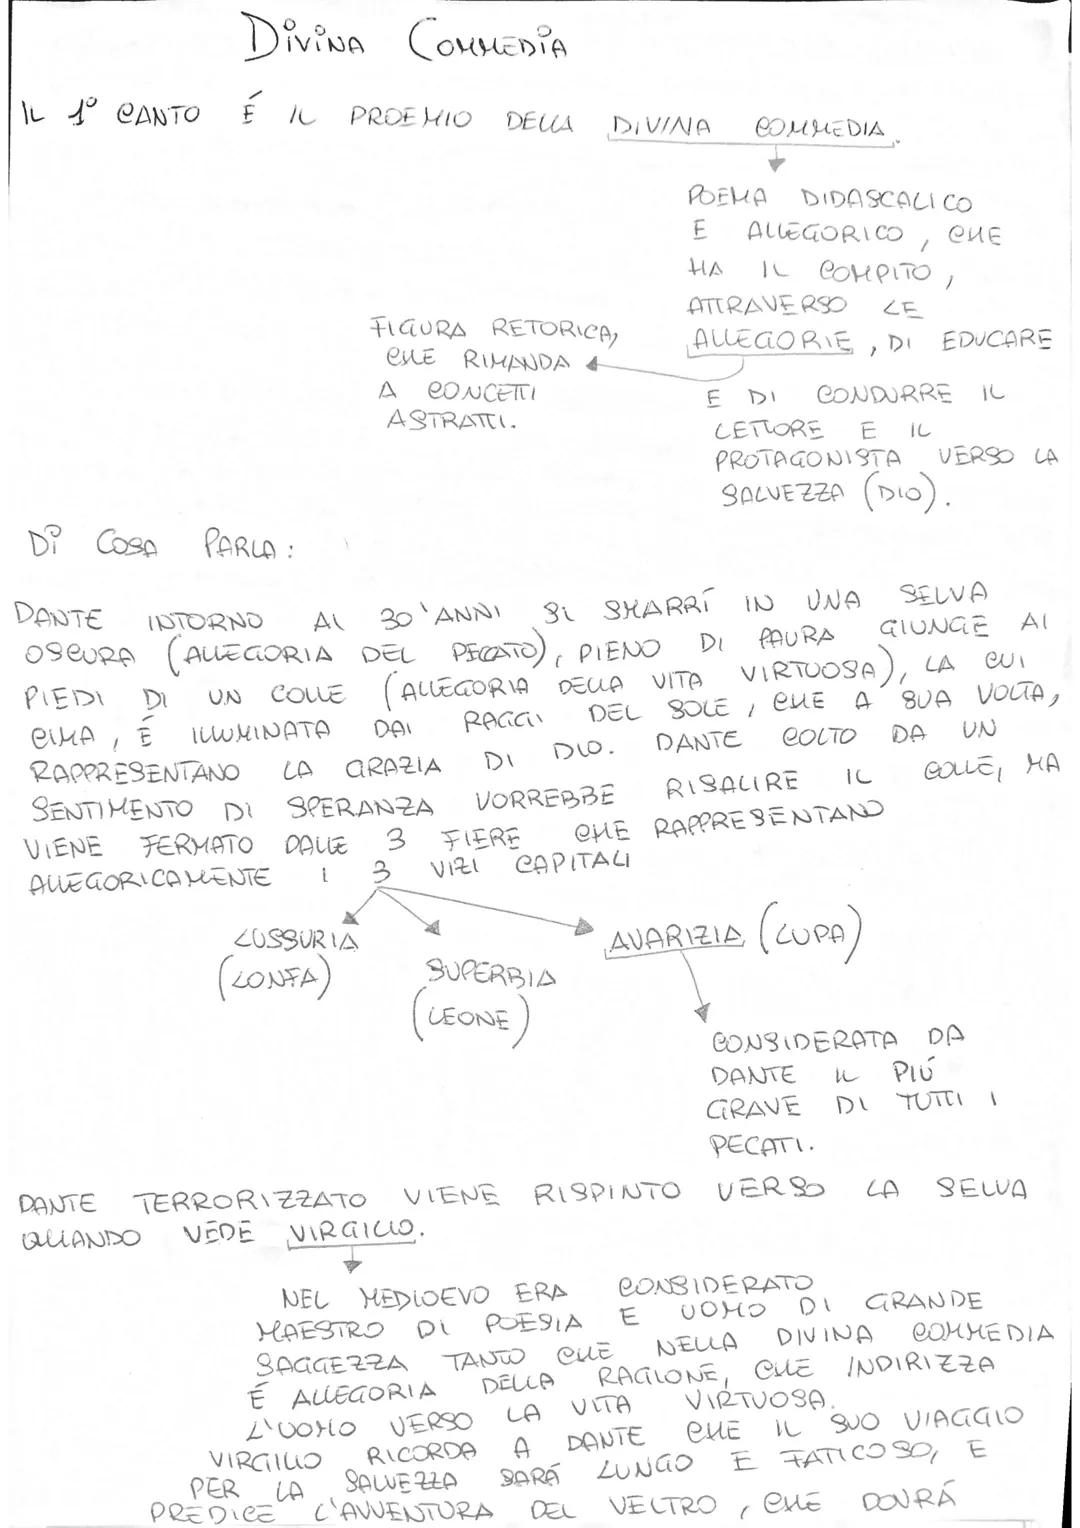 DiViNA COMMEDiA
IL 1° CANTO É IL PROEMIO DELLA DIVINA COMMEDIA.
POEMA DIDASCALICO
E ALLEGORICO, CHE
HA IL COMPITO,
ATTRAVERSO LE
ALLEGORIE, DI EDUCARE
E DI CONDURRE IL
LETTORE E IL
PROTAGONISTA VERSO LA
SALVEZZA (DIO).
FIGURA RETORICA,
CHE RIMANDA
A CONCETTI
ASTRATTI.
Di COSA PARLA:
DANTE INTORNO AI 30'ANNI Si SMARRÍ IN UNA SELVA
OSCURA (ALLEGORIA DEL PECCATO), PIENO DI PAURA GIUNGE AI
PIEDI DI UN COLLE (ALLEGORIA DELLA VITA VIRTUOSA), LA CUI
CIMA, É ILLUMINATA DAI RAGGI DEL SOLE, CHE A SUA VOLTA,
RAPPRESENTANO LA GRAZIA DI DIO. DANTE COLTO DA UN
SENTIMENTO DI SPERANZA VORREBBE RISALIRE IL COLLE, MA
VIENE FERMATO DALLE 3 FIERE CHE RAPPRESENTANO
ALLEGORICAMENTE I 3 VIZI CAPITALI
LUSSURIA
(LONFA)
SUPERBIA
(LEONE)
AVARIZIA (LUPA)
CONSIDERATA DA
DANTE IL PIÚ
GRAVE DI TUTTI I
PECATI.
DANTE TERRORIZZATO VIENE RISPINTO VERSO LA SELVA
QUANDO VEDE VIRGILIO.
NEL MEDIOEVO ERA CONSIDERATO
MAESTRO DI POESIA E UOMO DI GRANDE
SAGGEZZA TANTO CHE NELLA DIVINA COMMEDIA
É ALLEGORIA DELLA RAGIONE, CHE INDIRIZZA
L'UOMO VERSO LA VITA VIRTUOSA.
VIRGILIO RICORDA A DANTE CHE IL SUO VIAGGIO
PER LA SALVEZZA SARÁ LUNGO E FATICOSO, E
PREDICE L'AVVENTURA DEL VELTRO, CHE DOVRÁ